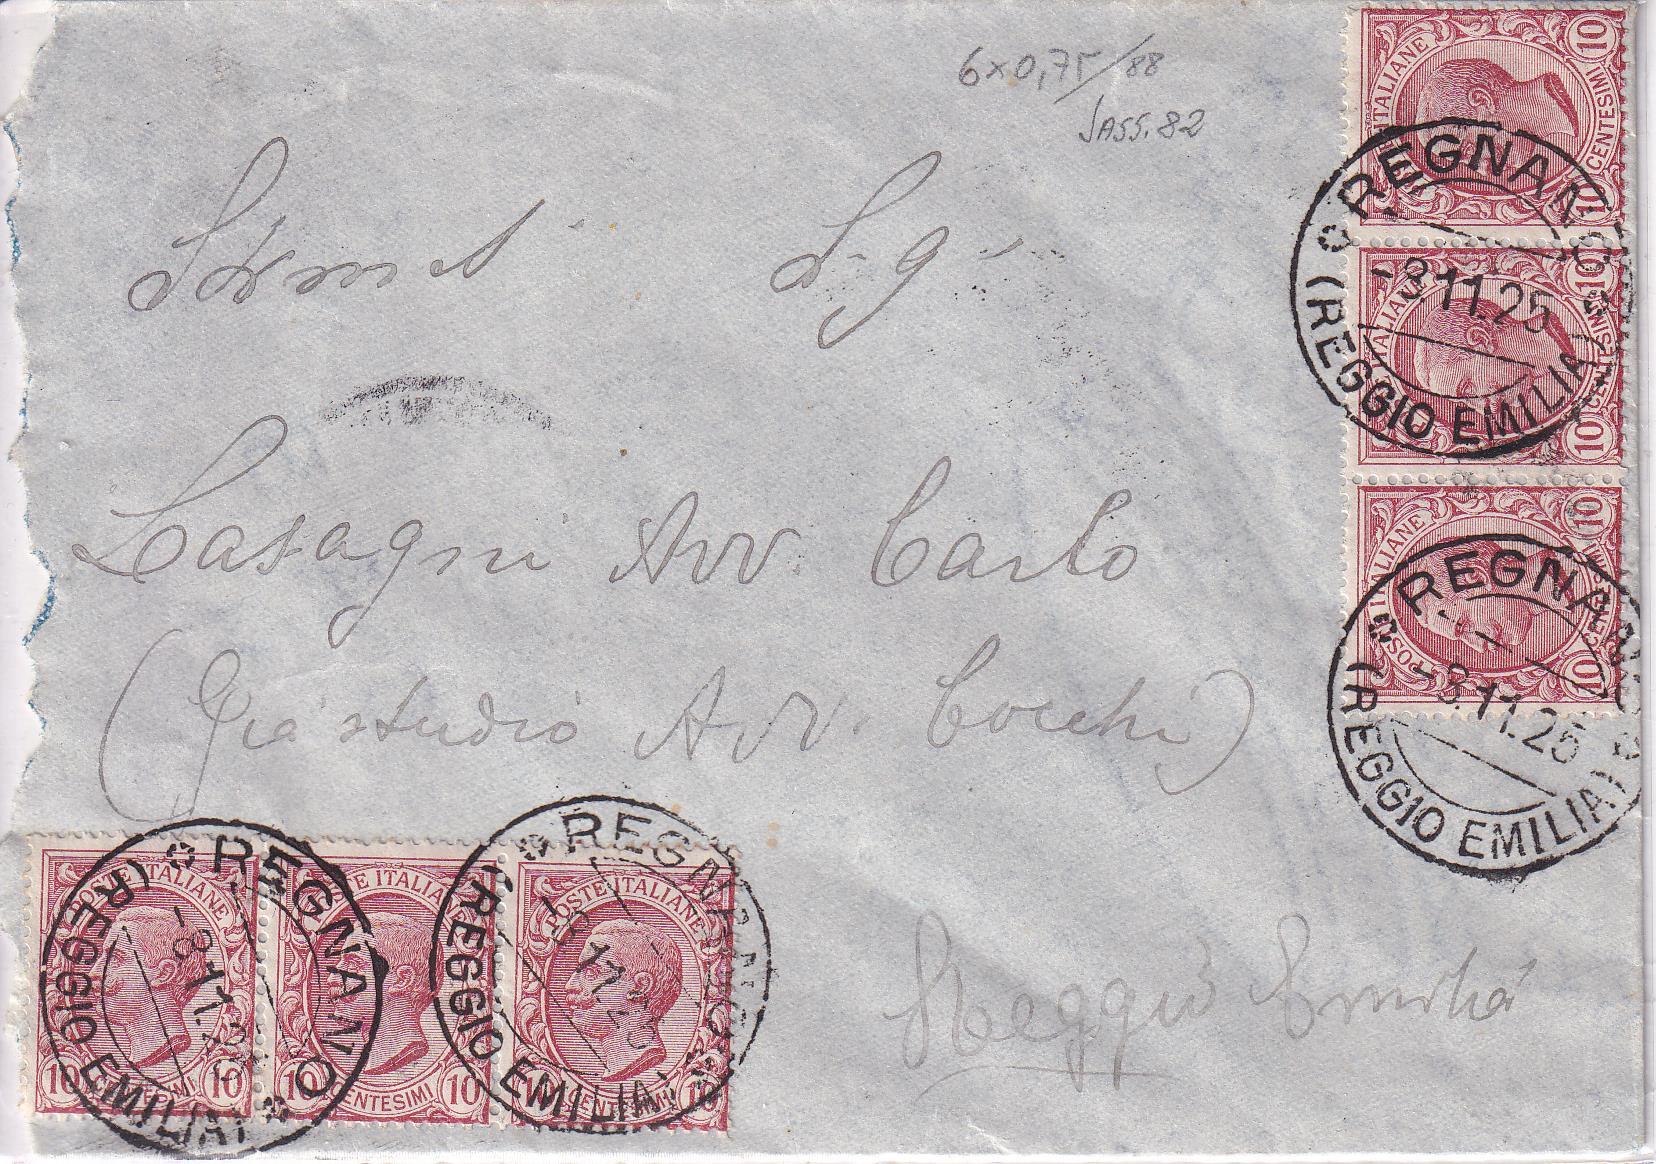 6x0,75/88
Sass. 82
POSTE ITALIANE 10 CENTESIMI 10
POSTE ITALIANE 10 CENTESIMI 10
POSTE ITALIANE 10 CENTESIMI 10
REGNANO (REGGIO EMILIA)
-8.11.25
REGNANO (REGGIO EMILIA)
-8.11.25
Casagni Avv Carlo
(Già studio Avv. Cocchi)
POSTE ITALIANE 10 CENTESIMI 10
POSTE ITALIANE 10 CENTESIMI 10
POSTE ITALIANE 10 CENTESIMI 10
REGNANO (REGGIO EMILIA)
-8.11.25
REGNANO (REGGIO EMILIA)
11.25
Reggio Emilia